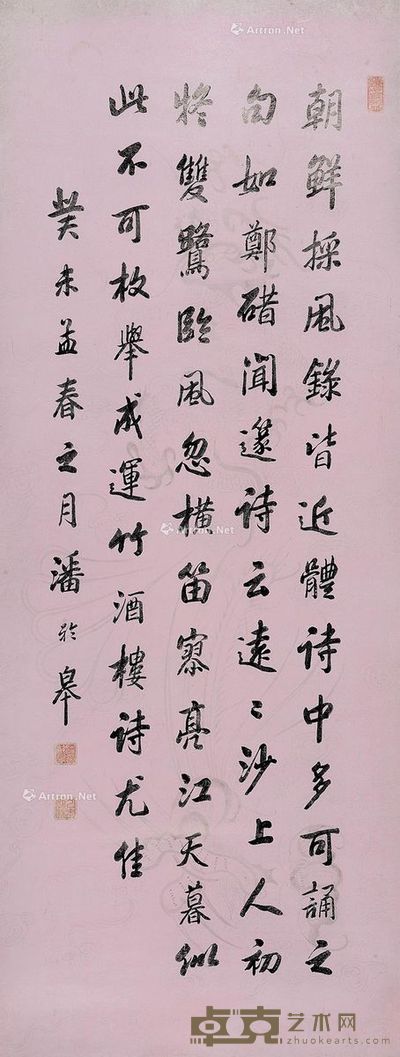 朝鮮採風錄皆近體詩中多可誦之
句如鄭碏聞篴詩云遠〻沙上人初
將雙鷺臨風忽橫笛寥亮江天暮似
此不可枚舉成運竹酒樓詩尤佳
癸未孟春之月潘齡皋
Artron.Net
Artron.Net
Artron.Net
卓克艺术网
www.zhuokearts.com